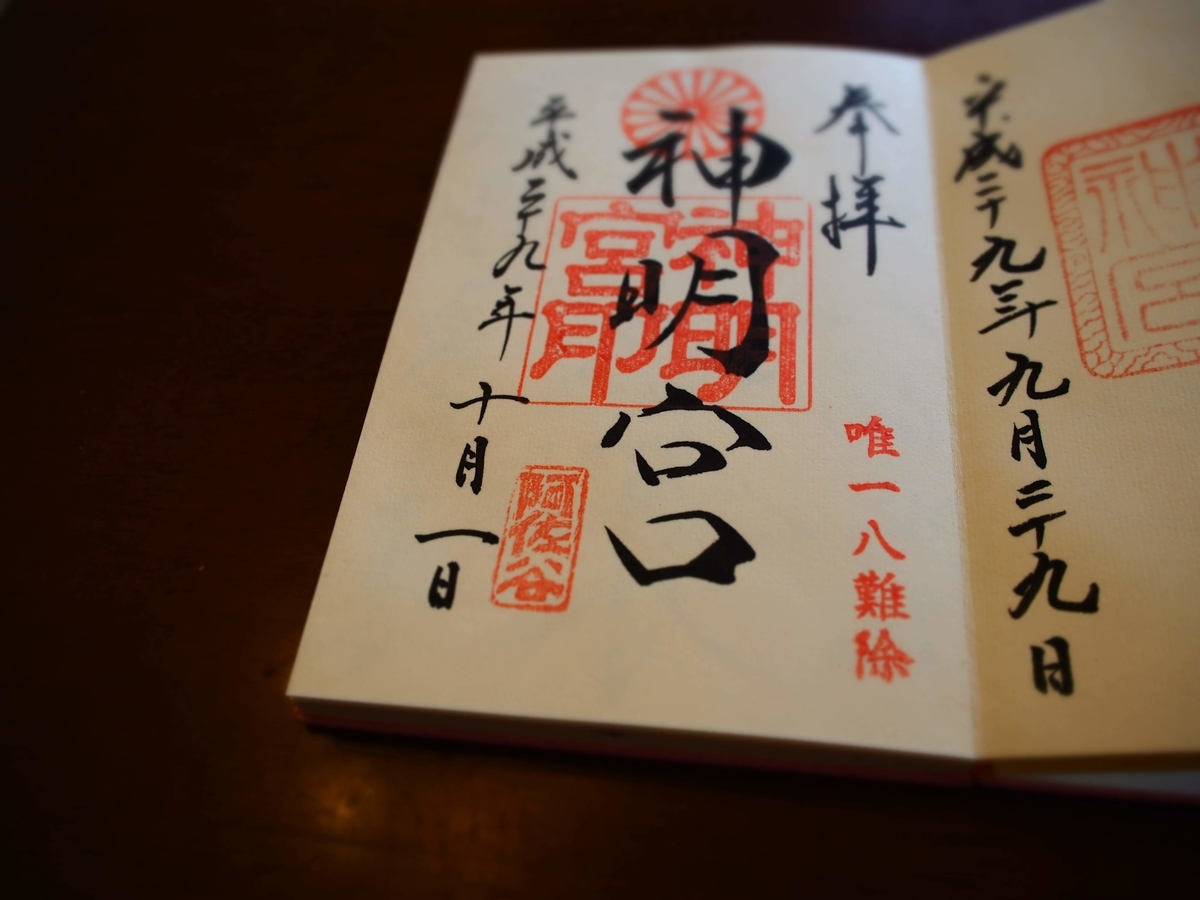 平成二十九年九月二十九日
奉拝
唯一八難除
神明宮
神明宮印
阿佐谷
平成二十九年十月一日